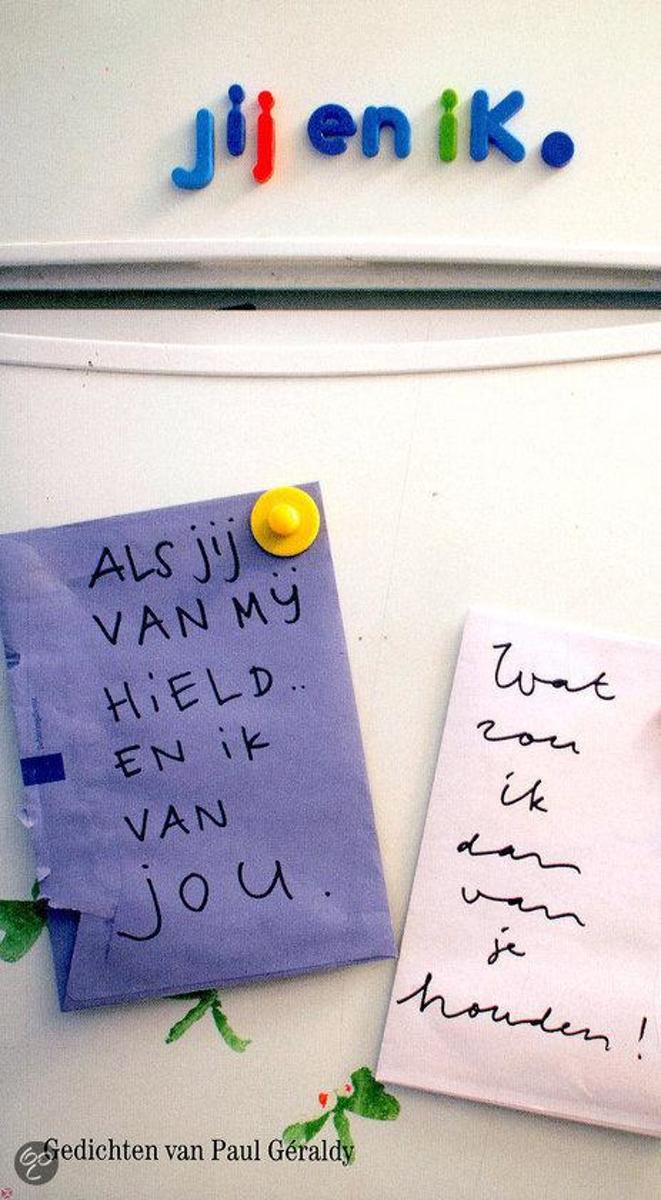 jij en ik.
ALS jij
VAN Mij
HiELD..
EN ik
VAN
jou.
Wat
zou
ik
dan
van
je
houden!
Gedichten van Paul Géraldy